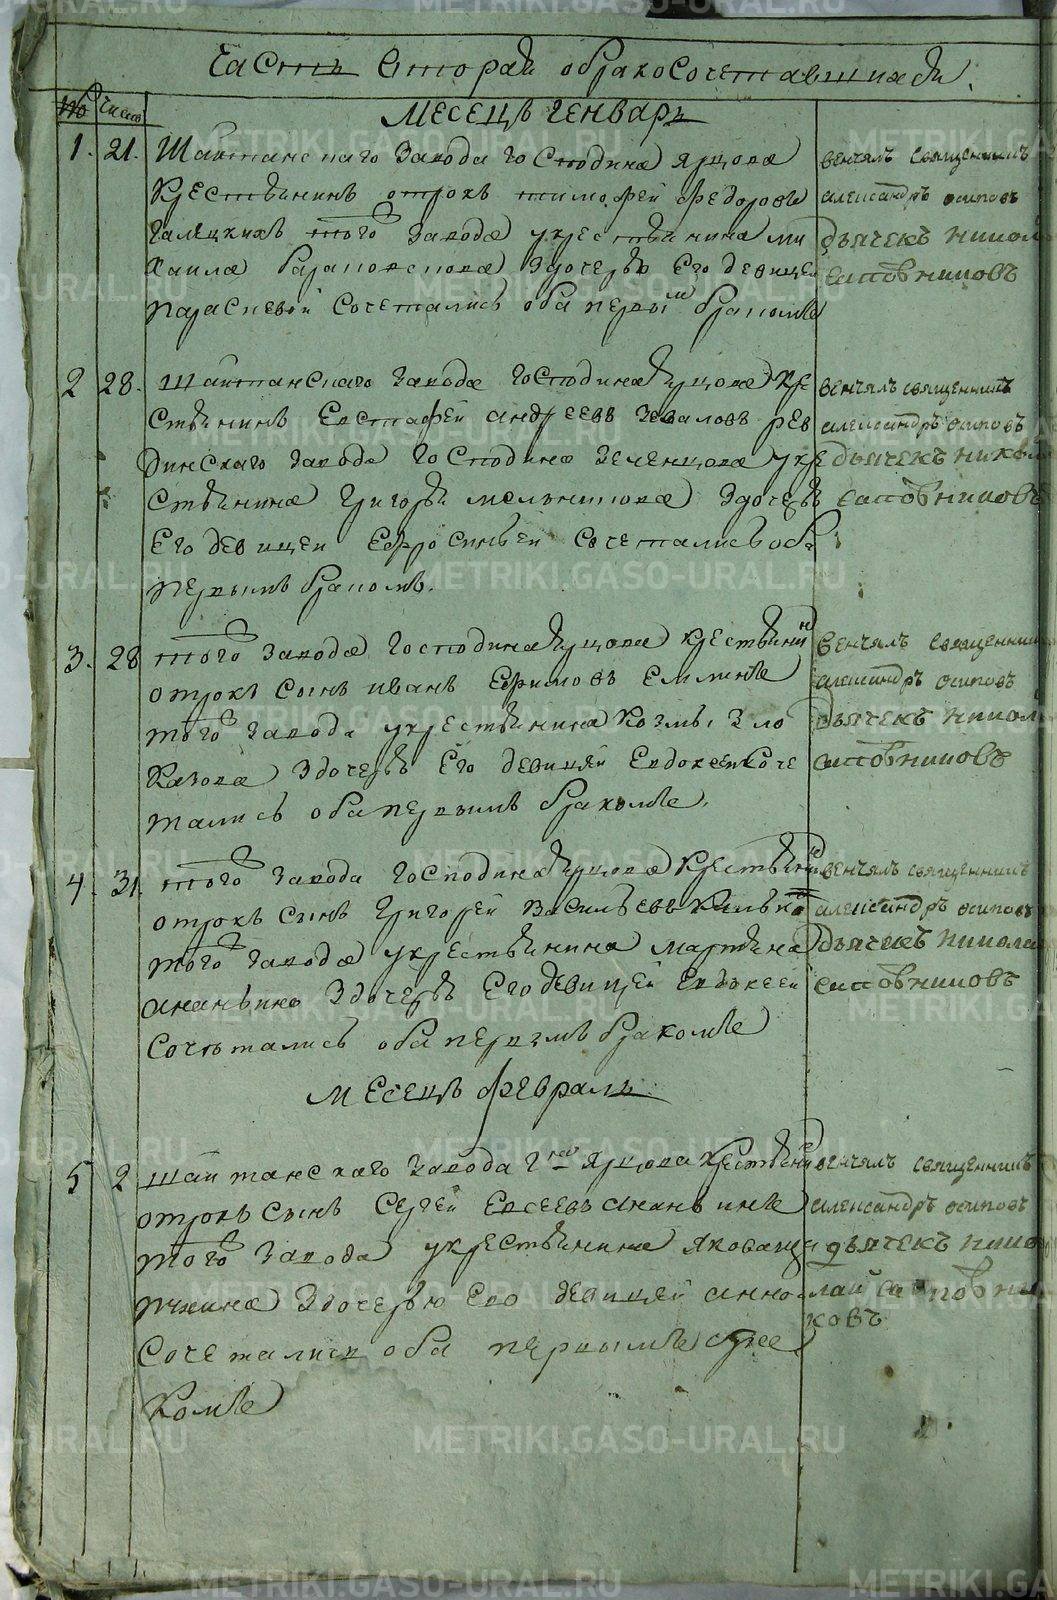 Часть вторая о бракосочетавшихся.
№ Число
Месецъ Генварь
1. 21. Шайтанскаго завода господина Ярцова
крестьянинъ отрокъ Тимофей Федоровъ
Галецкихъ того завода у крестьянина Ми
хаила здочерью Его девицей
Параскевой сочеталисъ оба первым бракомъ
венчалъ священникъ
александръ осиповъ
дьячекъ никол
сапожниковъ
2 28. Шайтанскаго завода господина Ярцова кре
стьянинъ Евстафей андреевъ Чеваловъ рев
динскаго завода господина Зеленцова у кре
стьянина Григорья Мельникова здочерью
Его девицей Ефросиньей сочеталисъ оба
первымъ бракомъ.
венчалъ священникъ
александръ осиповъ
дьячекъ никол
сапожниковъ
3. 28 того завода господина Ярцова крестьянин
отрокъ сынъ иванъ Ефимовъ Емлинъ
того завода у крестьянина Козмы Зло
казова здочерью Его девицей Евдокеей соче
талисъ оба первымъ бракомъ.
венчалъ священник
александръ осиповъ
дьячекъ никол
сапожниковъ
4. 31. того завода господина Ярцова крестьянин
отрокъ сынъ Григорей Васильевъ
того завода у крестьянина мартына
ананьина здочерью Его девицей Евдокеей
сочеталисъ оба первымъ бракомъ
венчалъ священникъ
александръ осиповъ
дьячекъ никола
сапожниковъ
месецъ февраль
5 2 Шайтанскаго завода Гна Ярцова крестьянин
отрокъ сынъ Сергей Евсеевъ ананьинъ
того завода у крестьянина якова
здочерью Ево девицей анно
сочеталисъ оба первымъ бра
комъ
венчалъ священникъ
александръ осиповъ
дьячекъ нико
лай сапожни
ковъ
METRIKI.GASO-URAL.RU